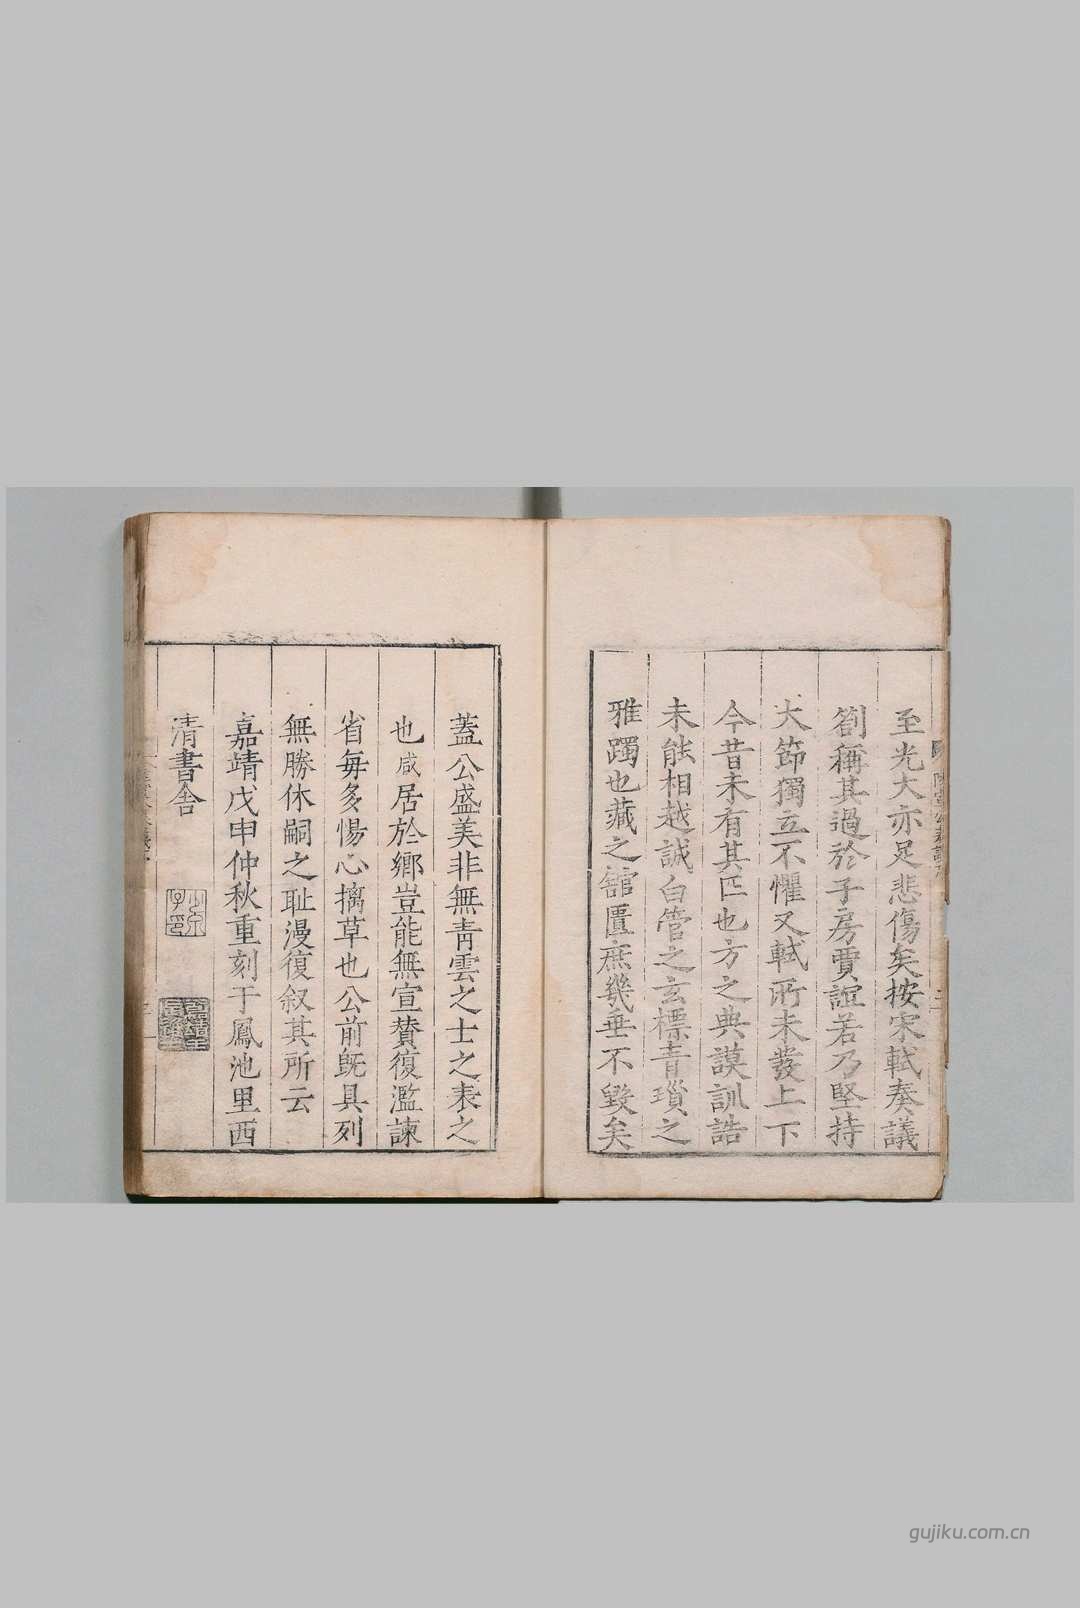 至光大亦足悲傷矣按宋軾奏議
劄稱其過於子房賈誼若乃堅持
大節獨立不懼又軾所未發上下
今昔未有其匹也方之典謨訓誥
未能相越誠白管之玄標青瑣之
雅躅也藏之舘匱庶幾垂不毀矣
蓋公盛美非無青雲之士之表之
也咸居於鄉豈能無宣賛復濫諫
省每多惕心摛草也公前既具列
無勝休嗣之耻漫復叙其所云
嘉靖戊申仲秋重刻于鳳池里西
清書舍
gujiku.com.cn